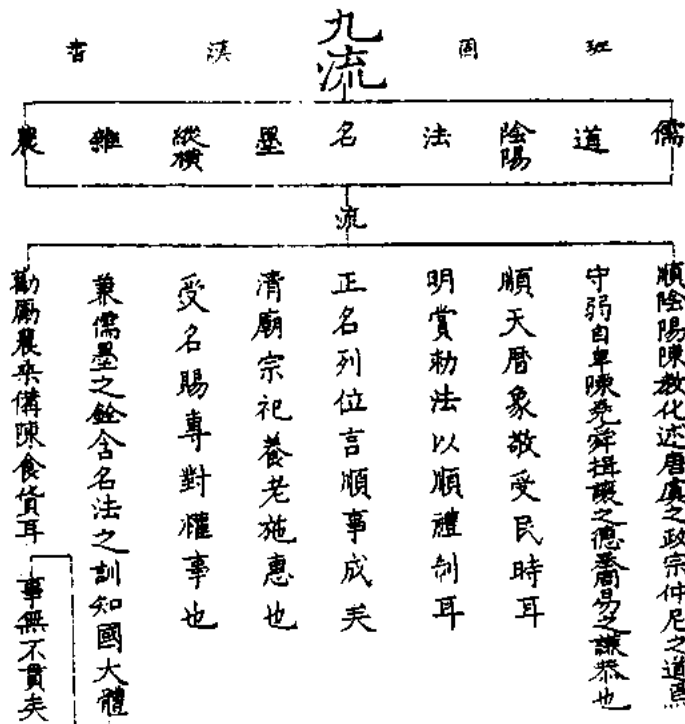 九流
班固漢書
儒
道
陰陽
法
名
墨
縱橫
雜
農
流
順陰陽陳教化述唐虞之政宗仲尼之道焉
守弱自卑陳堯舜揖讓之德番易之謙恭也
順天曆象敬受民時耳
明賞勅法以順禮制耳
正名列位言順事成矣
清廟宗祀養老施惠也
受名賜專對權事也
兼儒墨之銓含名法之訓知國大體
事無不貫矣
勸勵農桒備陳食貨耳